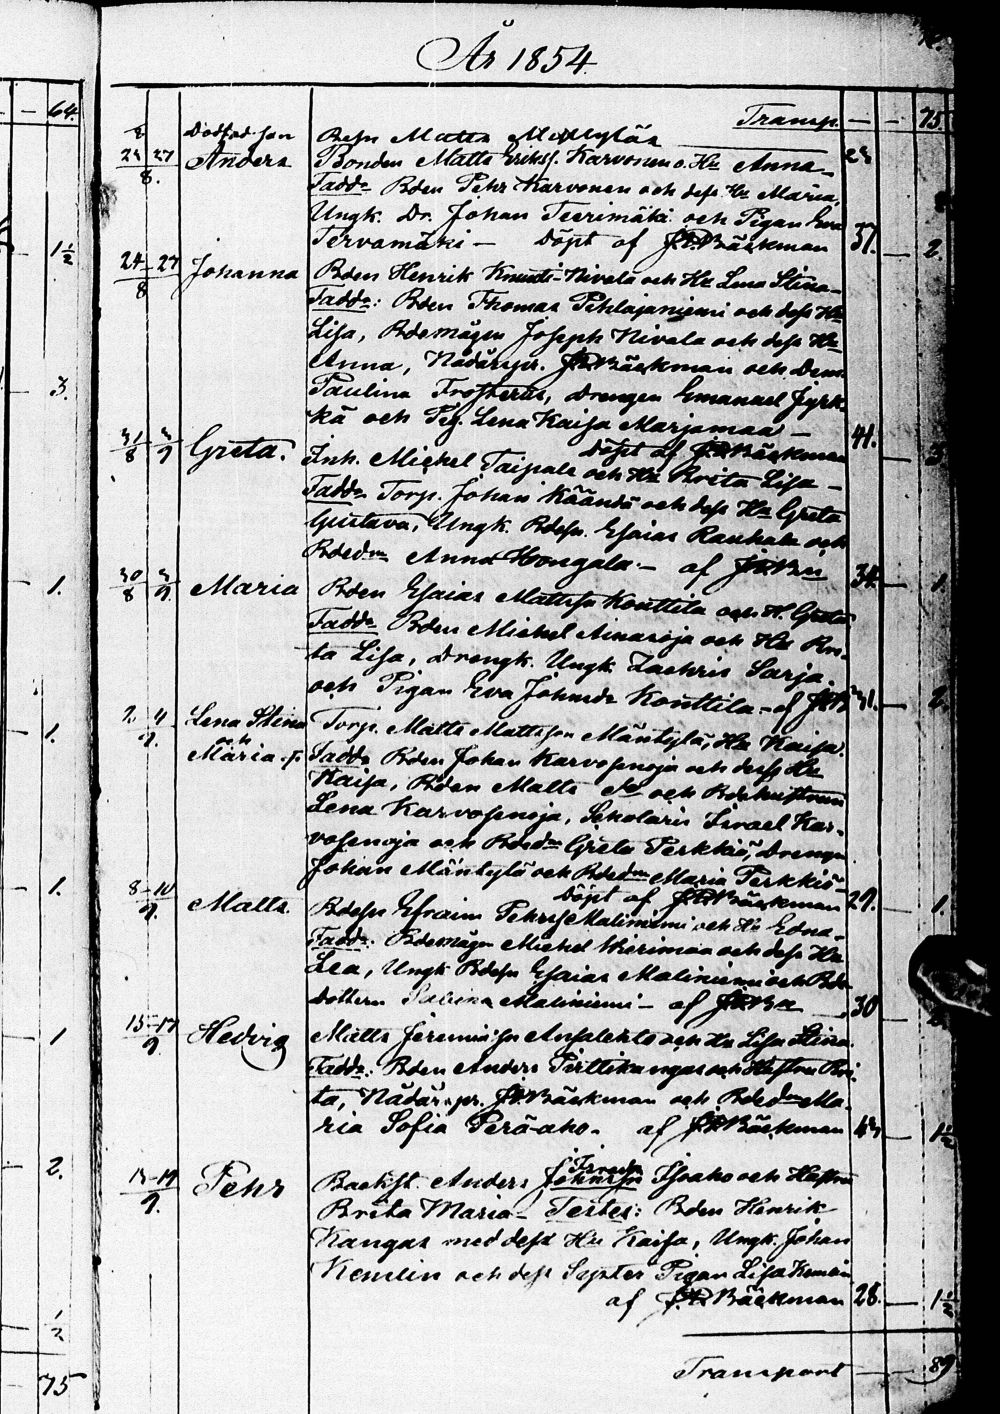 År 1854.
64. Transp. — — 75.
Dödfödd son Bdsn Matts Mäntylä
23 27 Anders Bonden Matts Erikss. Karvonen o. Hu Anna —
8. Fadd. Bden Pehr Karvonen och dess Hu Maria,
Ungk. Dr. Johan Teerimäki och Pigan Eva
1½ Tervamäki — Döpt af J.P. Bäckman 37. — 2.
24–27 Johanna Bden Henrik Knuuti-Nivela och Hu Lena Stina —
8 Fadd: Bden Thomas Pihlajaniemi och dess Hu
Lisa, Bdemågen Joseph Nivala och dess Hu
Anna, Nådårspr. J.P. Bäckman och Dem.
3. Paulina Frosterus, Drengen Emanuel Jyrk-
kä och Pig. Lena Kaisa Marjamaa — 41.
Döpt af J.P. Bäckman — 3.
31 3 Greta. Inh. Michel Taipale och Hu Brita Lisa —
8 9 Fadd. Torp. Johan Kääntä och dess Hu Greta
Gustava, Ungk. Bdesn. Esaias Rauhala och
Bded. Anna Hongala — af J.P. Bn 34 — 1.
1. 30 3 Maria Bden Esaias Mattss. Konttila och H. Greta
8 9. Fadd. Bden Michel Ainasoja och Hu Bri-
ta Lisa, Drengk. Ungk. Zachris Sarja
och Pigan Eva Johansdr Konttila — af J.P.B 31. — 2.
2. 4 Lena Stina Torp. Matts Mattsson Mäntylä, Hu Kaisa.
1. 9. och
Maria. Fadd. Bden Johan Karvosenoja och dess Hu
Kaisa, Bden Matts och Bdehustrun
Lena Karvosenoja, Scholaris Israel Kar-
vosenoja och Bded. Greta Perkkiö, Drengen
1. Johan Mäntylä och Bded. Maria Perkkiö —
Döpt af J.P. Bäckman 29. — 1.
8–10 Matts. Bdesn Efraim Pehrss Maliniemi och Hu Edna —
9. Fadd: Bdemågen Michel Wirimaa och dess Hu
Lea, Ungk Bdesn Esaias Maliniemi och Bde-
dottern Sabina Maliniemi — af J.P. Bn 30
1 15–17 Hedvig Matts Jeremiss Ansalehto och Hu Lisa Stina.
9. Fadd: Bden Anders Pirttikangas och Hustru Bri-
ta, Nådårspr. J.P. Bäckman och Bded. Ma-
ria Sofia Perä-aho. af J.P. Bäckman — 1½
2. 19 Pehr Backst. Anders Johnsn Isoaho och Hustru
9. Brita Maria — Testes: Bden Henrik
Kangas med dess Hu Kaisa, Ungk. Johan
Kemlin och dess Syster Pigan Lisa Kemlin
½ af J.P. Bäckman 28. — 1½
75 Transport — — 89